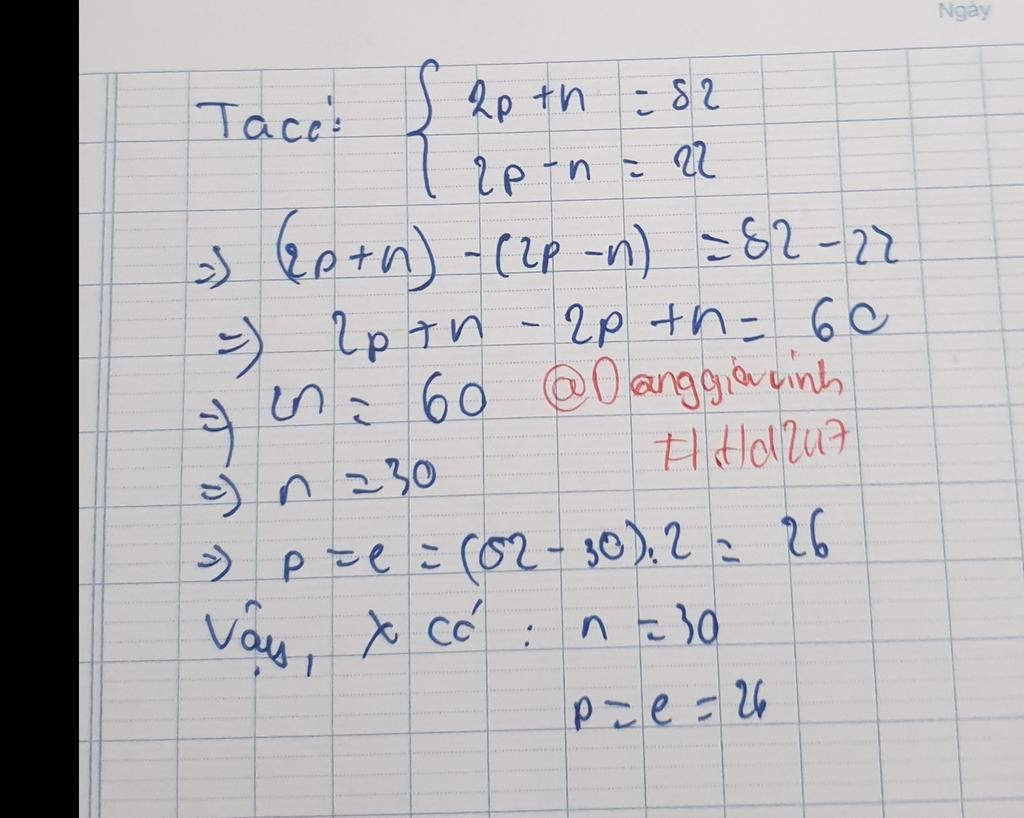 Ngày
Ta có: { 2p + n = 82
2p - n = 22
=> (2p + n) - (2p - n) = 82 - 22
=> 2p + n - 2p + n = 60
=> 2n = 60 @Danggiavinh
#Hd247
=> n = 30
=> p = e = (82 - 30) : 2 = 26
Vậy, X có : n = 30
p = e = 26